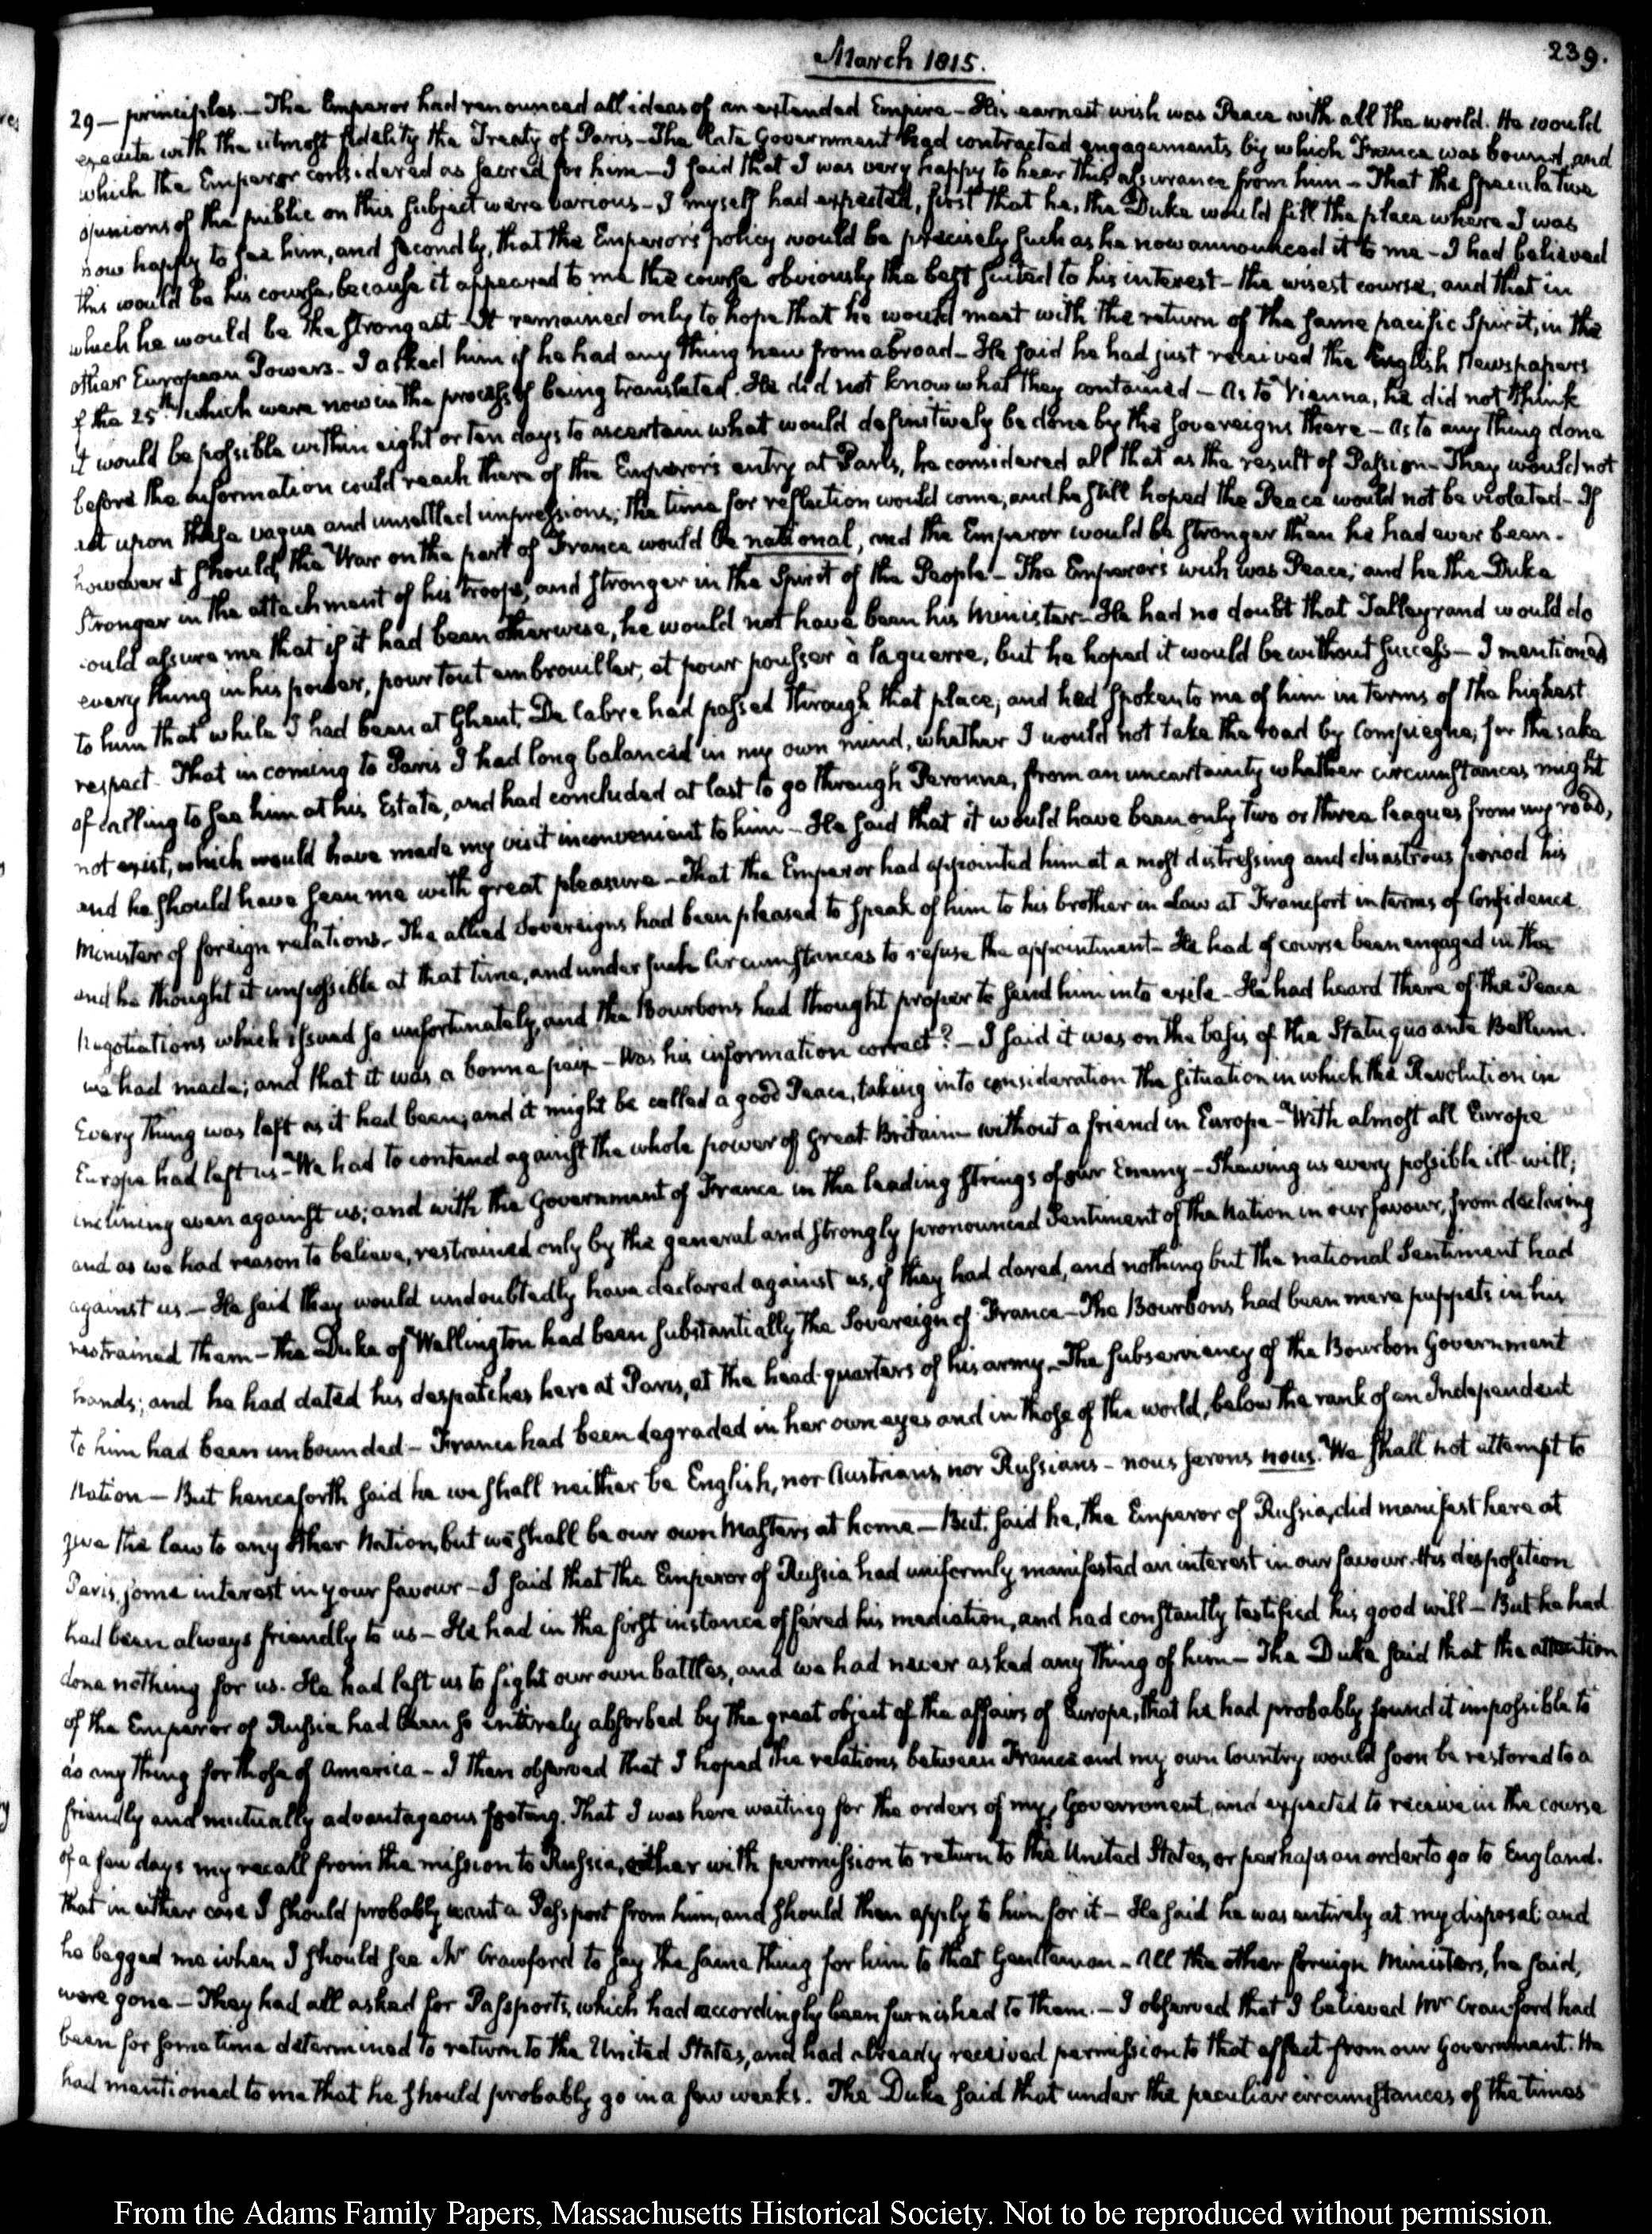 March 1815.
239.
29— principles.— The Emperor had renounced all ideas of an extended Empire— His earnest wish was Peace with all the world. He would
execute with the utmost fidelity the Treaty of Paris— The late Government had contracted engagements by which France was bound, and
which the Emperor considered as sacred for him— I said that I was very happy to hear this assurance from him— That the speculative
opinions of the public on this subject were various— I myself had expected, first that he, the Duke would fill the place where I was
now happy to see him, and secondly, that the Emperor's policy would be precisely such as he now announced it to me— I had believed
this would be his course, because it appeared to me the course obviously the best suited to his interest— the wisest course, and that in
which he would be the strongest— It remained only to hope that he would meet with the return of the same pacific Spirit, in the
other European Powers— I asked him if he had any thing new from abroad— He said he had just received the English Newspapers
of the 25th which were now in the process of being translated. He did not know what they contained— As to Vienna, he did not think
it would be possible within eight or ten days to ascertain what would definitively be done by the Sovereigns there— As to any thing done
before the information could reach there of the Emperor's entry at Paris, he considered all that as the result of Passion— They would not
act upon these vague and unsettled impressions; the time for reflection would come, and he still hoped the Peace would not be violated— If
however it should, the War on the part of France would be national, and the Emperor would be stronger than he had ever been.
Stronger in the attachment of his troops, and stronger in the Spirit of the People— The Emperor's wish was Peace; and he the Duke
could assure me that if it had been otherwise, he would not have been his Minister— He had no doubt that Talleyrand would do
every thing in his power, pour tout embrouiller, et pour pousser à la guerre, but he hoped it would be without success— I mentioned
to him that while I had been at Ghent, De Cabre had passed through that place, and had spoken to me of him in terms of the highest
respect. That in coming to Paris I had long balanced in my own mind, whether I would not take the road by Compiegne, for the sake
of calling to see him at his Estate, and had concluded at last to go through Peronne, from an uncertainty whether circumstances might
not exist, which would have made my visit inconvenient to him— He said that it would have been only two or three leagues from my road,
and he should have seen me with great pleasure— That the Emperor had appointed him at a most distressing and disastrous period his
Minister of foreign relations— The allied Sovereigns had been pleased to speak of him to his brother in Law at Francfort in terms of Confidence
and he thought it impossible at that time, and under such circumstances to refuse the appointment— He had of course been engaged in the
Negotiations which issued so unfortunately, and the Bourbons had thought proper to send him into exile— He had heard there of the Peace
we had made; and that it was a bonne paix— Was his information correct?— I said it was on the basis of the Status quo ante Bellum.
Every thing was left as it had been, and it might be called a good Peace, taking into consideration the situation in which the Revolution in
Europe had left us— We had to contend against the whole power of Great-Britain— without a friend in Europe— With almost all Europe
inclining even against us; and with the Government of France in the leading strings of our Enemy— Shewing us every possible ill-will;
and as we had reason to believe, restrained only by the general and strongly pronounced Sentiment of the Nation in our favour, from declaring
against us— He said they would undoubtedly have declared against us, if they had dared, and nothing but the national Sentiment had
restrained them— the Duke of Wellington had been substantially the Sovereign of France— The Bourbons had been mere puppets in his
hands; and he had dated his despatches here at Paris, at the head-quarters of his army— The subserviency of the Bourbon Government
to him had been unbounded— France had been degraded in her own eyes and in those of the world, below the rank of an Independent
Nation— But henceforth said he we shall neither be English, nor Austrians, nor Russians— nous serons nous. We shall not attempt to
give the law to any other Nation, but we shall be our own Masters at home— But, said he, the Emperor of Russia, did manifest here at
Paris, some interest in your favour— I said that the Emperor of Russia had uniformly manifested an interest in our favour. His disposition
had been always friendly to us— He had in the first instance offered his mediation, and had constantly testified his good will— But he had
done nothing for us. He had left us to fight our own battles, and we had never asked any thing of him— The Duke said that the attention
of the Emperor of Russia had been so entirely absorbed by the great object of the affairs of Europe, that he had probably found it impossible to
do any thing for those of America— I then observed that I hoped the relations between France and my own Country would soon be restored to a
friendly and mutually advantageous footing. That I was here waiting for the orders of my Government, and expected to receive in the course
of a few days my recall from the mission to Russia, either with permission to return to the United States, or perhaps an order to go to England.
that in either case I should probably want a Passport from him, and should then apply to him for it— He said he was entirely at my disposal; and
he begged me when I should see Mr Crawford to say the same thing for him to that Gentleman— All the other foreign Ministers, he said,
were gone— They had all asked for Passports, which had accordingly been furnished to them.— I observed that I believed Mr Crawford had
been for some time determined to return to the United States, and had already received permission to that effect from our Government. He
had mentioned to me that he should probably go in a few weeks. The Duke said that under the peculiar circumstances of the times
From the Adams Family Papers, Massachusetts Historical Society. Not to be reproduced without permission.